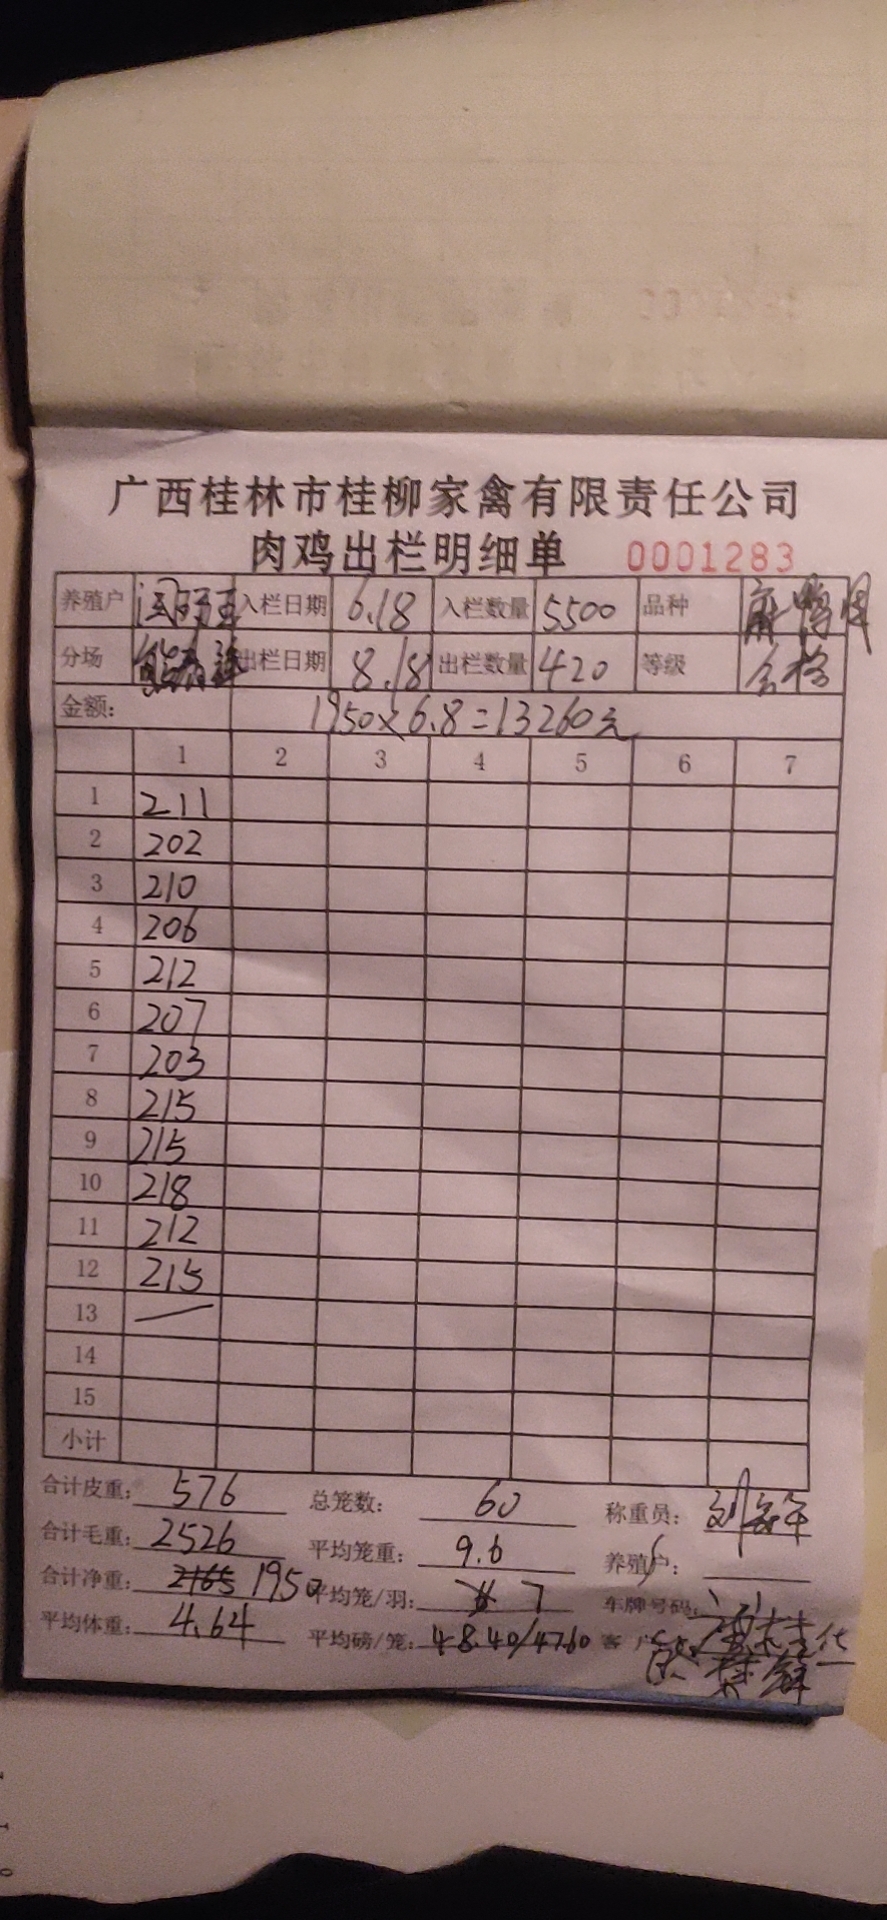 广西桂林市桂柳家禽有限责任公司
肉鸡出栏明细单 0001283
养殖户 入栏日期 6.18 入栏数量 5500 品种
分场 出栏日期 8.18 出栏数量 420 等级 合格
金额: 1950×6.8=13260元
1 2 3 4 5 6 7
1 211
2 202
3 210
4 206
5 212
6 207
7 203
8 215
9 215
10 218
11 212
12 215
13
14
15
小计
合计皮重: 576 总笼数: 60 称重员:
合计毛重: 2526 平均笼重: 9.6 养殖户:
合计净重: 2165 1950 平均笼/羽: 7 车牌号码:
平均体重: 4.64 平均磅/笼: 48.40/47.60 客户